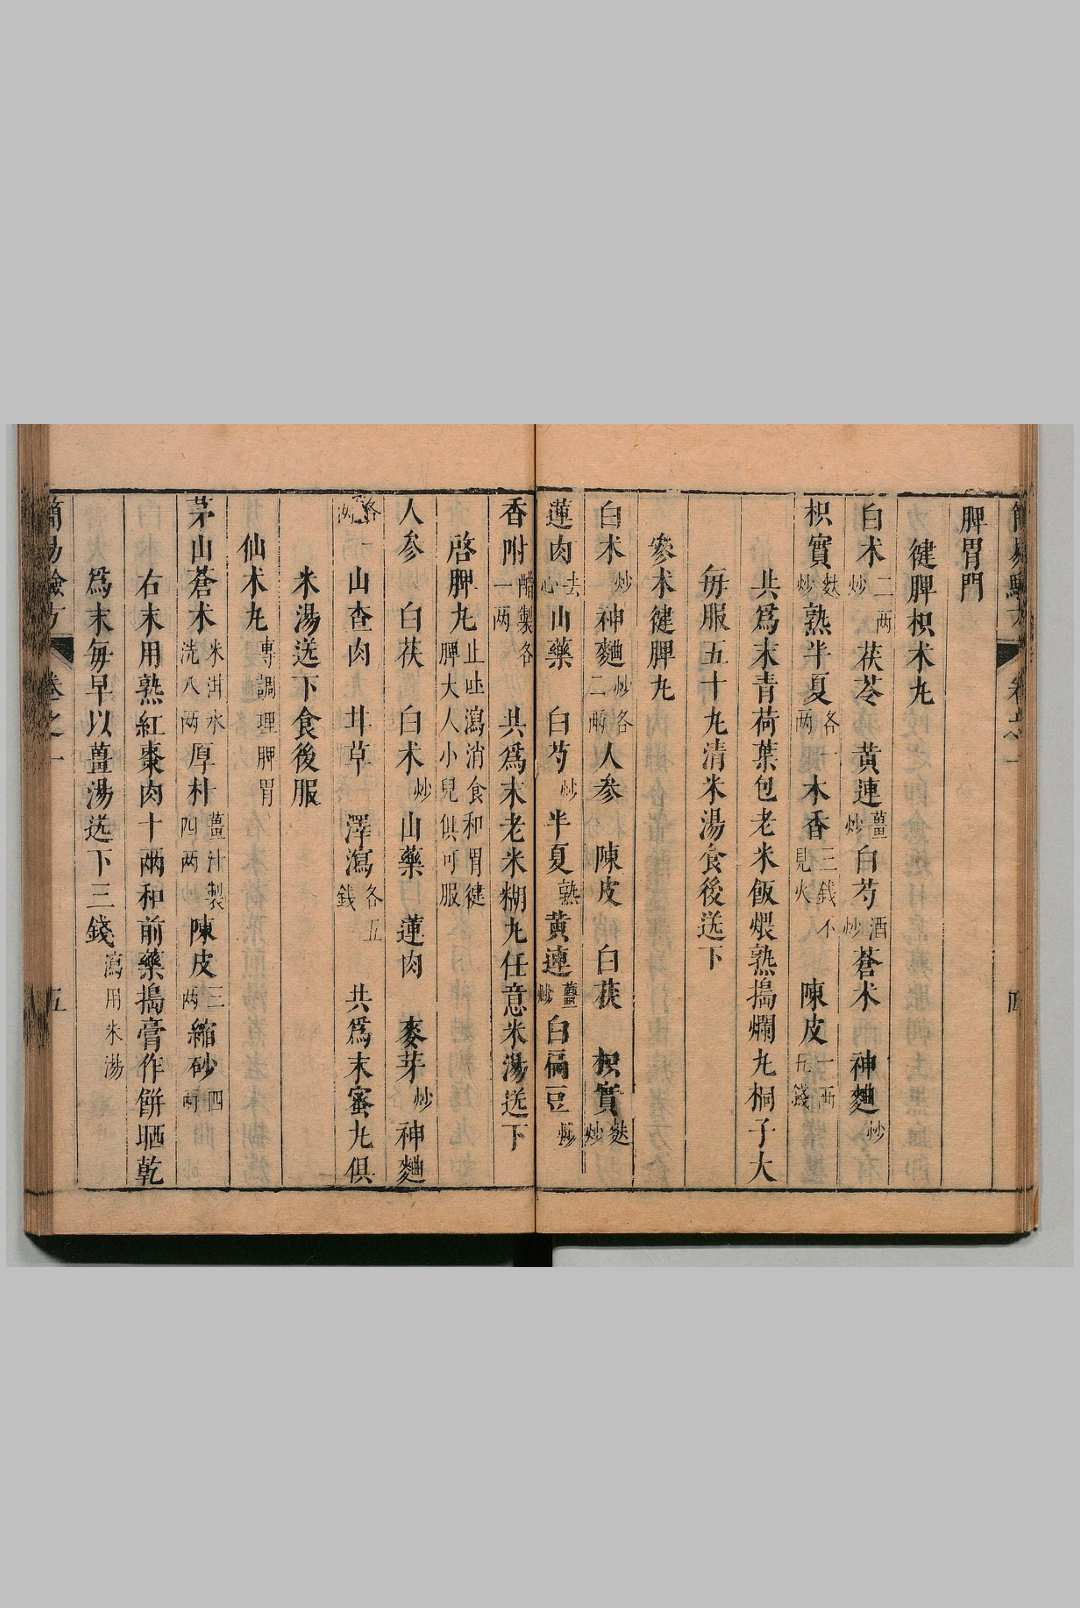 脾胃門
健脾枳术丸
白术二两炒 茯苓 黄連薑炒 白芍酒炒 蒼术 神麯炒
枳實麩炒 熟半夏各一两 木香三錢不見火 陳皮一两九錢
共爲末青荷葉包老米飯煨熟搗爛丸桐子大
每服五十丸清米湯食後送下
參术健脾丸
白术炒 神麯炒各二两 人參 陳皮 白茯 枳實麩炒
蓮肉去心 山藥 白芍炒 半夏熟 黄連薑炒 白扁豆炒
香附醋製各一两 共爲末老米糊丸任意米湯送下
啓脾丸止吐瀉消食和胃健脾大人小兒俱可服
人參 白茯 白术炒 山藥 蓮肉 麥芽炒 神麯
各一两 山查肉 甘草 澤瀉各五錢 共爲末蜜丸俱
米湯送下食後服
仙术丸專調理脾胃
茅山蒼术米泔水洗八两 厚朴薑汁製四两 陳皮三两 縮砂四两
右末用熟紅棗肉十两和前藥搗膏作餅晒乾
爲末每早以薑湯送下三錢瀉用米湯
簡易驗方 卷之一 五